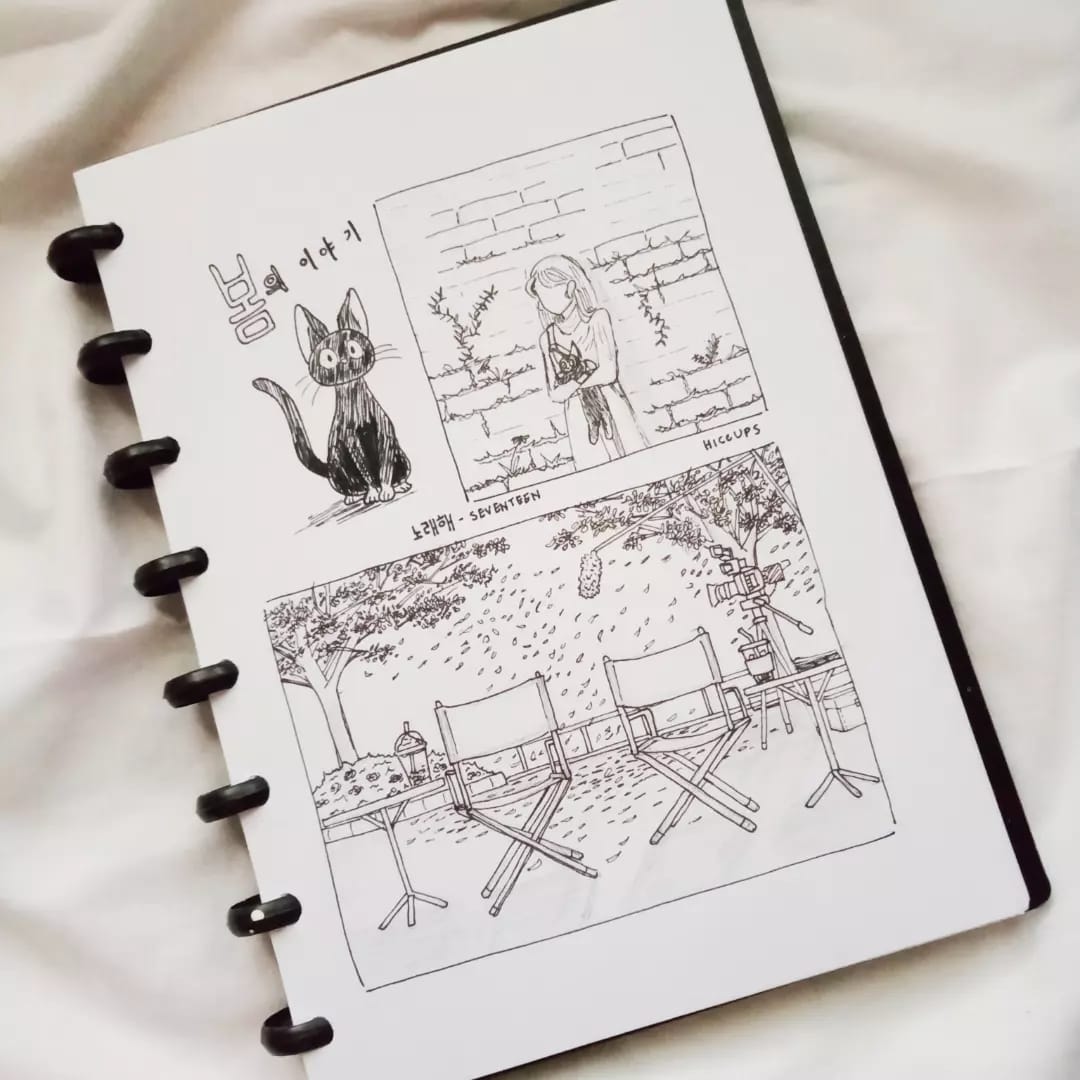 이야기
HICCUPS
노래해 - SEVENTEEN